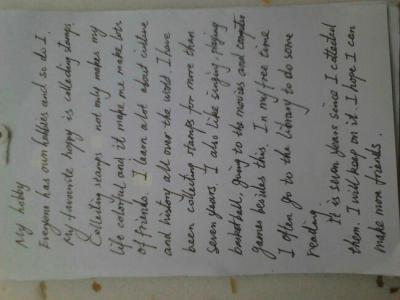 My hobby
Everyone has own hobbies and so do I.
My favourite hoppy is collecting stamps.
Collecting stamps not only makes my
life colorful and it make me make lots
of friends. I learn a lot about culture
and history all over the world. I have
been collecting stamps for more than
seven years. I also like singing, playing
basketball, going to the movies and computer
games besides this. In my free time
I often go to the library to do some
reading.
It is seven years since I collected
them. I will keep on it. I hope I can
make more friends.